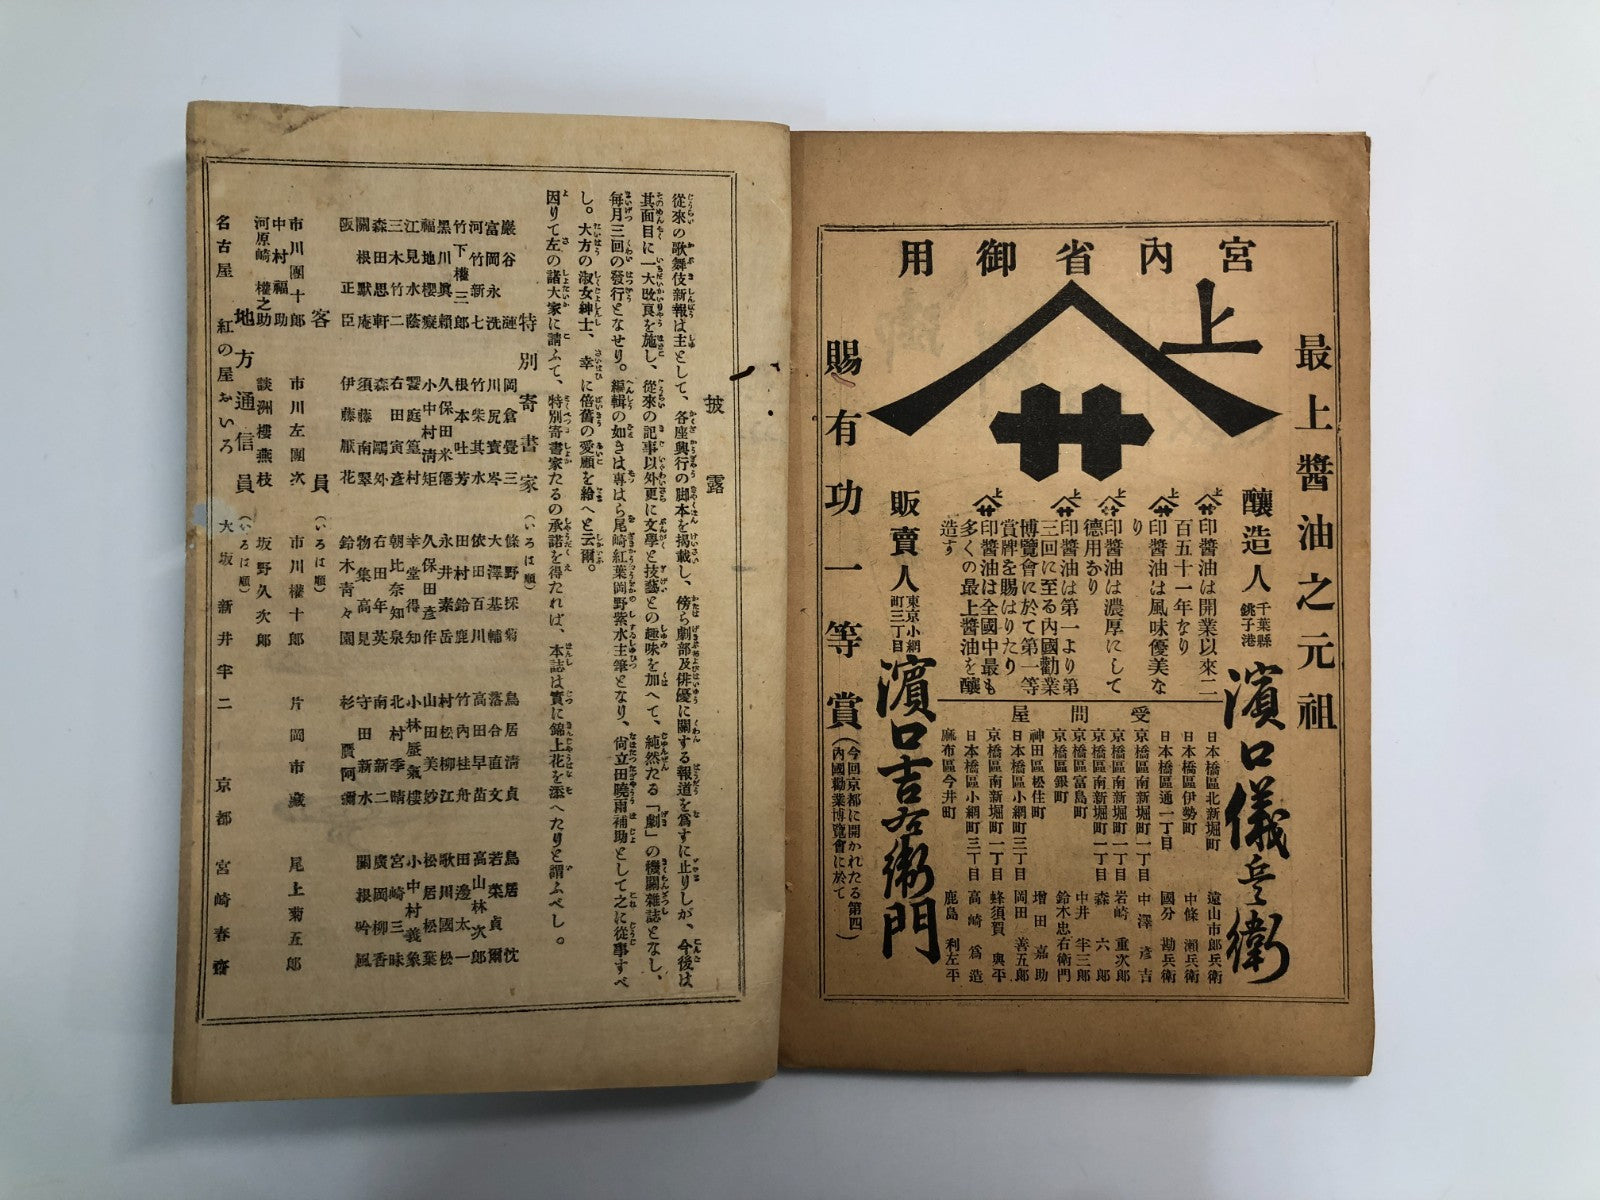 宮内省御用
上
最上醬油之元祖
釀造人
千葉縣
銚子港
濱口儀兵衛
印醬油は開業以來二
百五十一年なり
印醬油は風味優美な
り
印醬油は濃厚にして
德用なり
印醬油は第一より第
三回に至る內國勸業
博覽會に於て第一等
賞牌を賜はりたり
印醬油は全國中最も
多くの最上醬油を釀
造す
販賣人
東京小網
町三丁目
濱口吉右衛門
受問屋
日本橋區北新堀町 遠山市郎兵衛
日本橋區伊勢町 中條瀨兵衛
日本橋區通一丁目 國分勘兵衛
京橋區南新堀町一丁目 中澤彥吉
京橋區南新堀町一丁目 岩崎重次郎
京橋區南新堀町一丁目 森六郎
京橋區富島町 中井半三郎
京橋區銀町 鈴木忠右衛門
神田區松住町 增田嘉助
日本橋區小網町三丁目 岡田善五郎
京橋區南新堀町一丁目 蜂須賀與平
日本橋區小網町三丁目 高崎爲造
麻布區今井町 鹿島利左平
賜有功一等賞
(今回京都に開かれたる第四
內國勸業博覽會に於て)
披露
從來の歌舞伎新報は主として、各座興行の脚本を揭載し、傍ら劇部及俳優に關する報道を爲すに止りしが、今後は
其面目に一大改良を施し、從來の記事以外更に文學と技藝との趣味を加へて、純然たる「劇」の機關雜誌となし、
每月三回の發行となせり。編輯の如きは專はら尾崎紅葉岡野紫水主筆となり、尙立田曉雨補助として之に從事すべ
し。大方の淑女紳士、幸に倍舊の愛顧を給へと云爾。
因りて左の諸大家に請ふて、特別寄書家たるの承諾を得たれば、本誌は實に錦上花を添へたりと謂ふべし。
特別寄書家(いろは順)
巖谷漣 岡倉覺三 條野採菊 鳥居淸貞 鳥居忱
富岡永洗 川尻寶岑 大澤基輔 落合直文 若菜貞爾
河竹新七 竹柴其水 依田百川 高田早苗 高山林次郎
竹下權三郎 根本吐芳 田村鈴鹿 竹內桂舟 田邊太一
黑川眞賴 久保田米僊 永井素岳 村松柳江 歌川國松
福地櫻癡 小中村淸矩 久保田彥作 山田美妙 松居松葉
江見水蔭 饗庭篁村 幸堂得知 小林蹴氣樓 小中村義象
三木竹二 右田寅彥 朝比奈知泉 北村季晴 宮崎三昧
森田思軒 森鷗外 右田年英 南新二 廣岡柳香
關根默庵 須藤南翠 物集高見 守田新水 關根吟風
阪正臣 伊藤厭花 鈴木靑々園 杉贋阿彌
客員(いろは順)
市川團十郎 市川左團次 市川權十郎 片岡市藏 尾上菊五郎
中村福助
河原崎權之助 談洲樓燕枝 坂野久次郎
地方通信員(いろは順)
名古屋 紅の屋おいろ 大坂 新井半二 京都 宮崎春齋